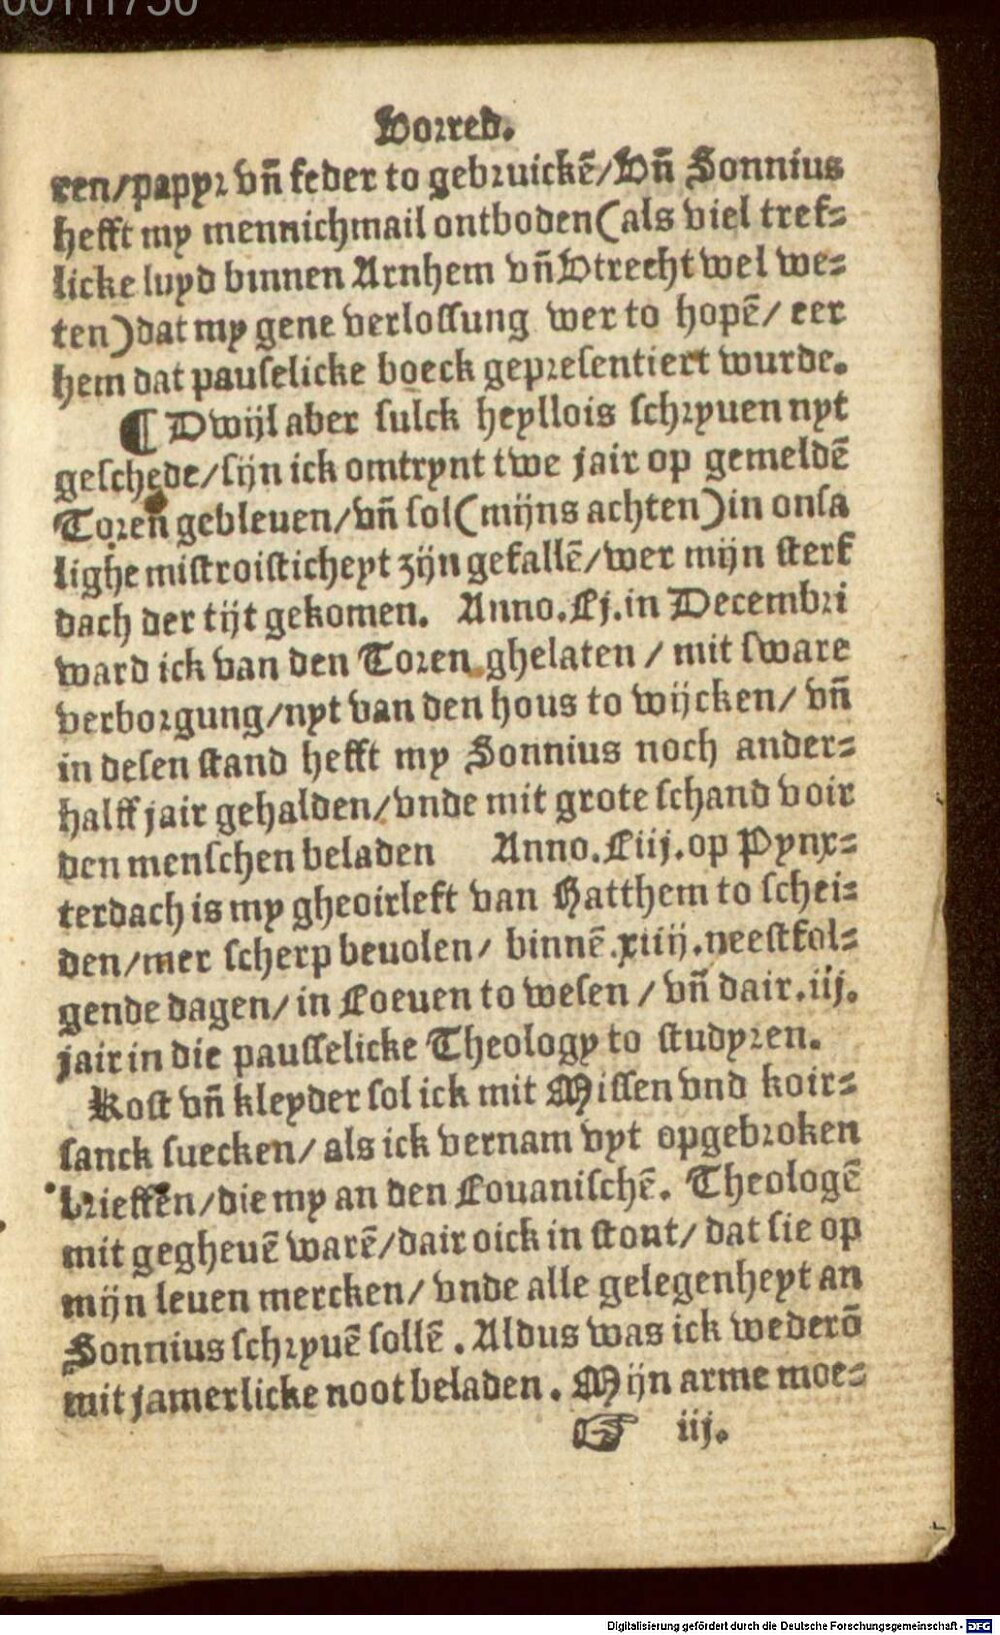 00111730
Vorred.
ren/papyr vn̄ feder to gebruickē/Vn̄ Sonnius
hefft my mennichmail ontboden(als viel tref⸗
licke luyd binnen Arnhem vn̄ Vtrecht wel we⸗
ten)dat my gene verlossung wer to hopē/ eer
hem dat pauselicke boeck gepresentiert wurde.
¶ Dwijl aber sulck heyllois schryuen nyt
geschede/sijn ick omtrynt twe jair op gemeldē
Toren gebleuen/vn̄ sol(mijns achten)in onsa
lighe mistroisticheyt zijn gefallē/wer mijn sterf
dach der tijt gekomen. Anno.Lj.in Decembri
ward ick van den Toren ghelaten / mit sware
verborgung/nyt van den hous to wijcken/ vn̄
in desen stand hefft my Sonnius noch ander⸗
halff jair gehalden/vnde mit grote schand voir
den menschen beladen Anno.Liij.op Pynx⸗
terdach is my gheoirleft van Hatthem to schei⸗
den/mer scherp beuolen/ binnē.xiiij.neestfol⸗
gende dagen/in Loeuen to wesen / vn̄ dair.iij.
jair in die pausselicke Theology to studyren.
Kost vn̄ kleyder sol ick mit Missen vnd koir⸗
sanck suecken/ als ick vernam vyt opgebroken
brieffen/die my an den Louanischē. Theologē
mit gegheuē warē/dair oick in stont/ dat sie op
mijn leuen mercken/ vnde alle gelegenheyt an
Sonnius schryuē sollē . Aldus was ick wederō
mit jamerlicke noot beladen. Mijn arme moe⸗
☞ iij.
Digitalisierung gefördert durch die Deutsche Forschungsgemeinschaft - DFG